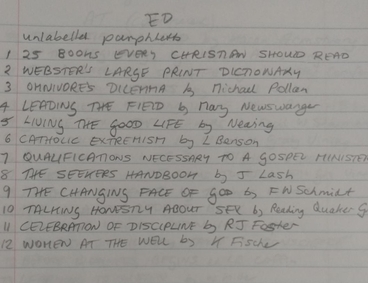 ED
unlabelled pamphlets
1 25 BOOKS EVERY CHRISTIAN SHOULD READ
2 WEBSTER'S LARGE PRINT DICTIONARY
3 OMNIVORE'S DILEMMA by Michael Pollan
4 LEADING THE FIELD by Mary Newswanger
5 LIVING THE GOOD LIFE by Nearing
6 CATHOLIC EXTREMISM by L Benson
7 QUALIFICATIONS NECESSARY TO A GOSPEL MINISTER
8 THE SEEKERS HANDBOOK by J Lash
9 THE CHANGING FACE OF GOD by FW Schmidt
10 TALKING HONESTLY ABOUT SEX by Reading Quaker G
11 CELEBRATION OF DISCIPLINE by RJ Foster
12 WOMEN AT THE WELL by K Fischer